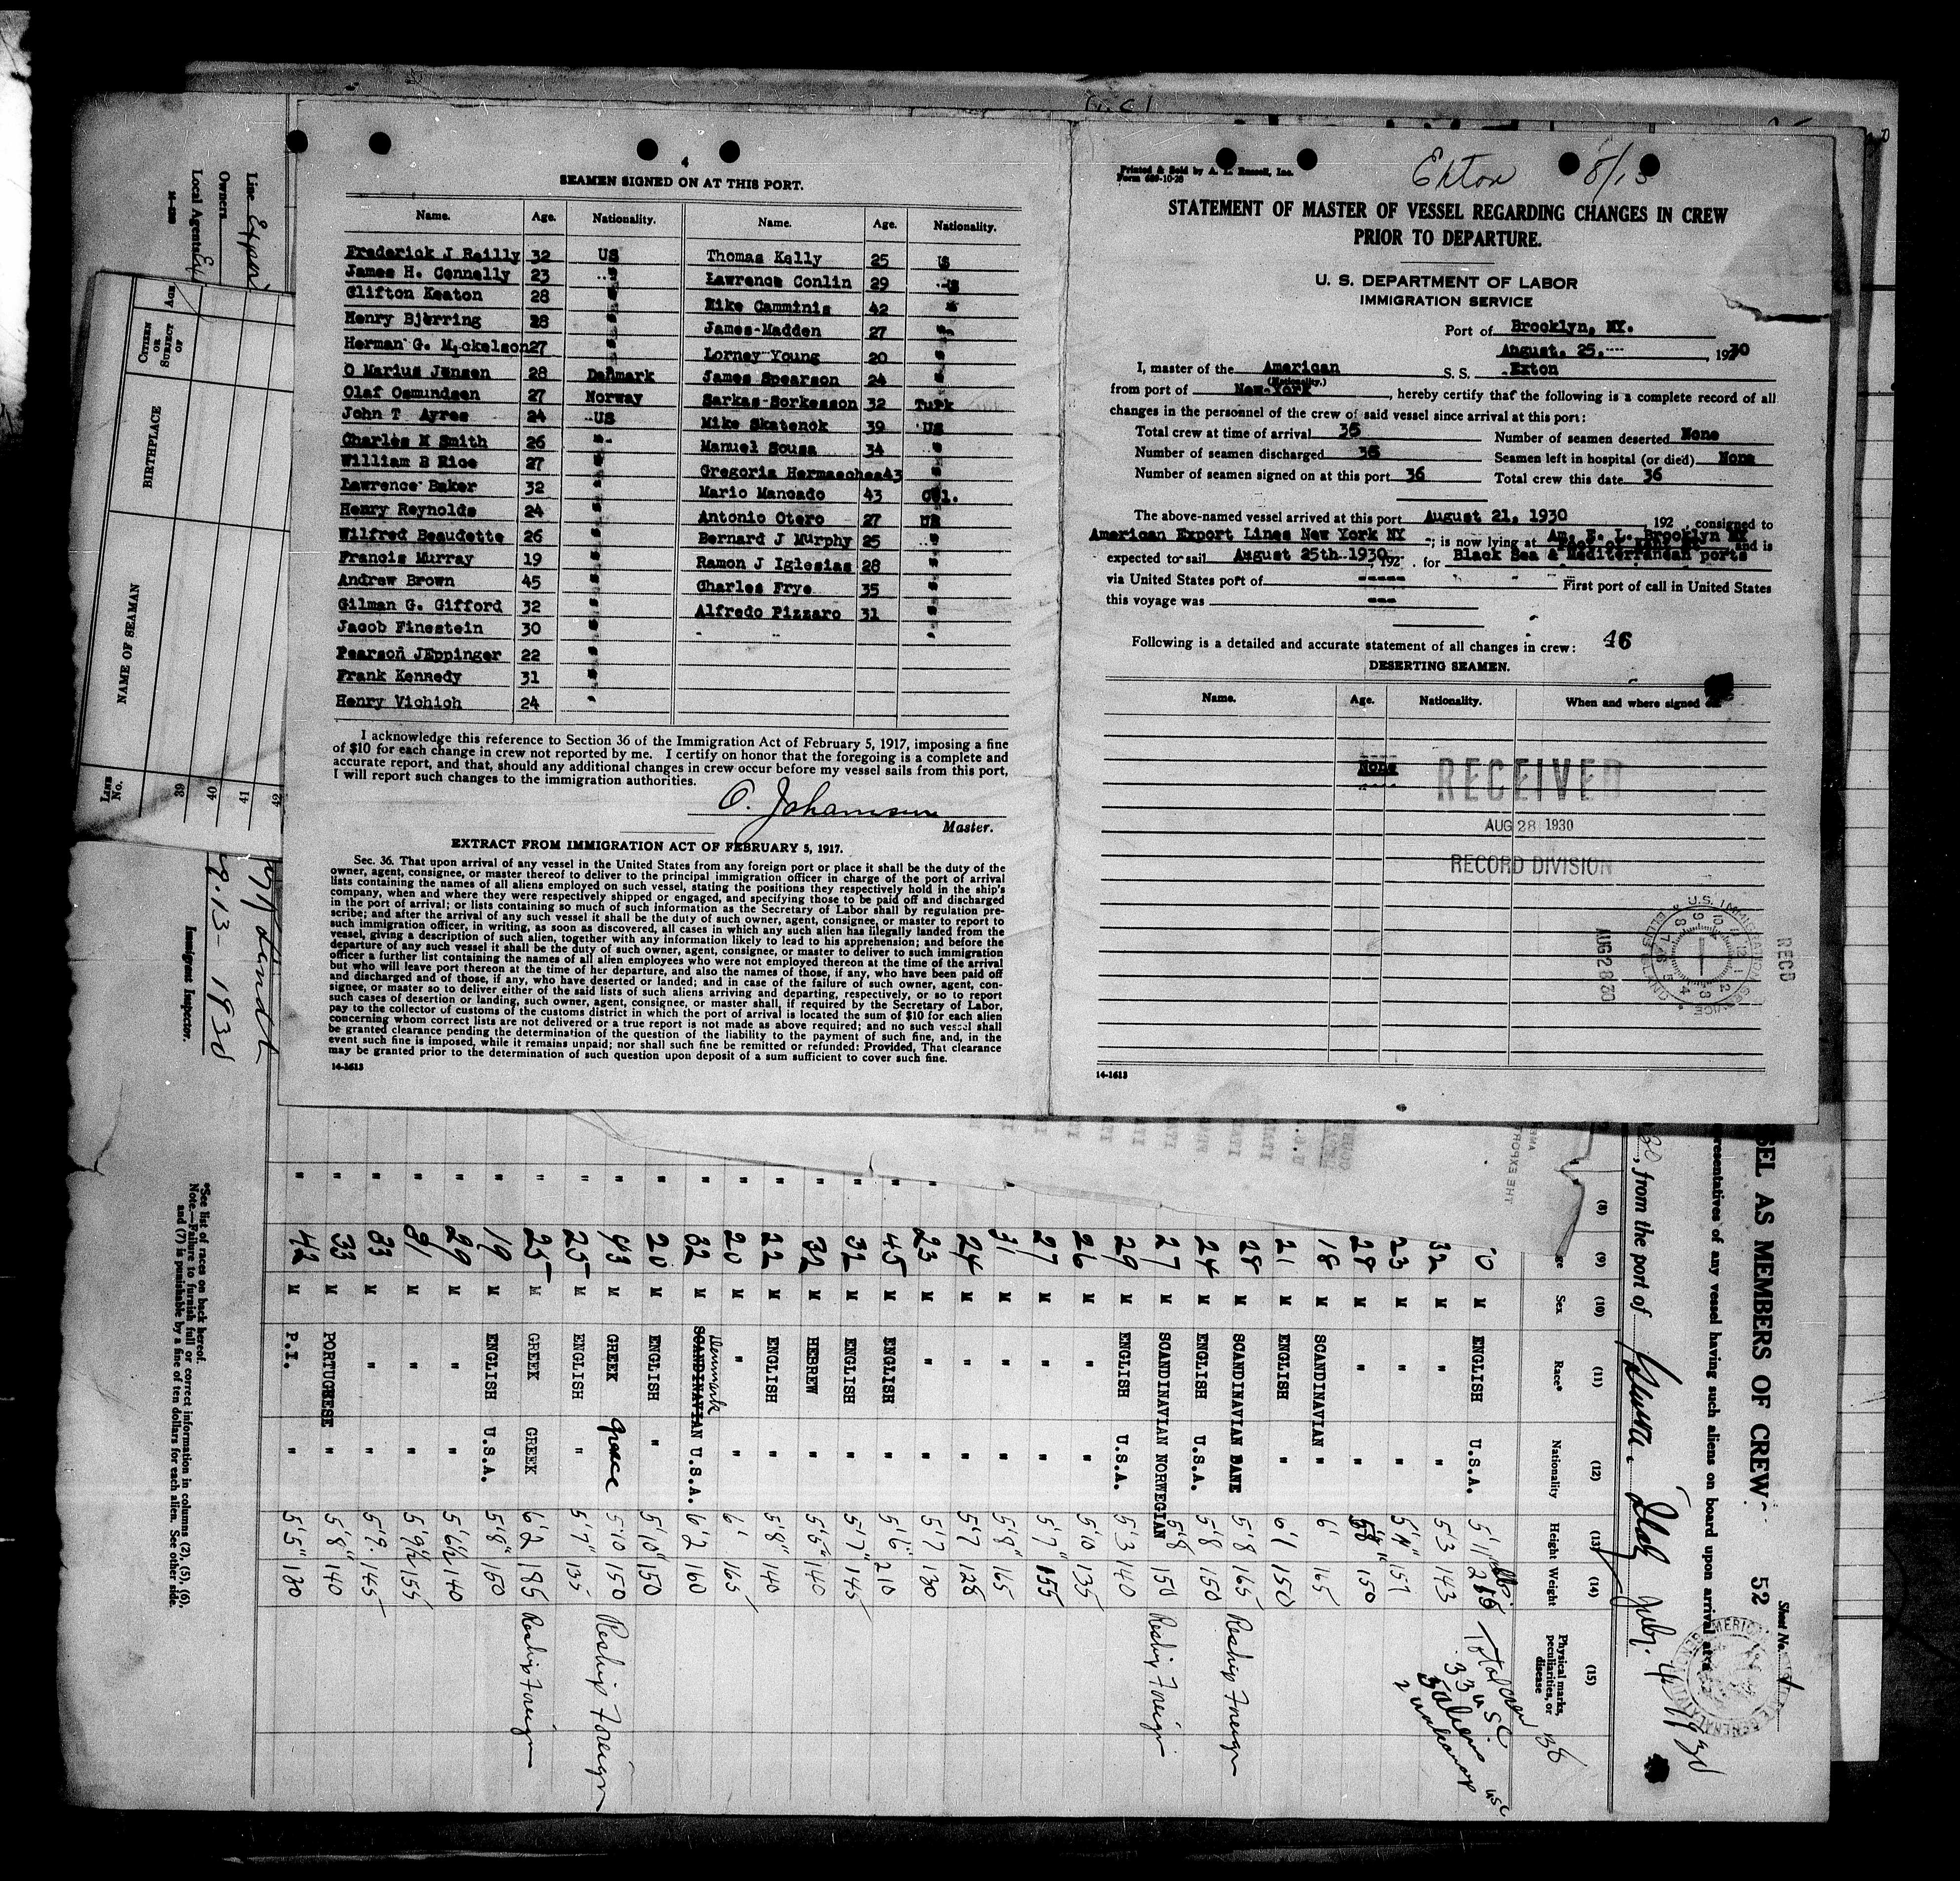 4
SEAMEN SIGNED ON AT THIS PORT.
Name. Age. Nationality. Name. Age. Nationality.
Frederick J Reilly 32 US Thomas Kelly 25 US
James H. Connelly 23 " Lawrence Conlin 29 US
Clifton Keaton 28 " Mike Camminis 42 "
Henry Bjerring 28 " James Madden 27 "
Herman G. Mickelson 27 " Lorney Young 20 "
O Marius Jensen 28 Denmark James Spearson 24 "
Olaf Osmundsen 27 Norway Sarkas Sorkesson 32 Turk
John T Ayres 24 US Mike Skatenok 39 US
Charles M Smith 26 " Manuel Sousa 34 "
William B Rice 27 " Gregoria Hermaechea 43 "
Lawrence Baker 32 " Mario Mancado 43
Henry Reynolds 24 " Antonio Otero 27 US
Wilfred Beaudette 26 " Bernard J Murphy 25 "
Francis Murray 19 " Ramon J Iglesias 28 "
Andrew Brown 45 " Charles Frye 35 "
Gilman G. Gifford 32 " Alfredo Pizzaro 31 "
Jacob Finestein 30 "
Pearson JEppinger 22 "
Frank Kennedy 31 "
Henry Vichich 24 "
I acknowledge this reference to Section 36 of the Immigration Act of February 5, 1917, imposing a fine
of $10 for each change in crew not reported by me. I certify on honor that the foregoing is a complete and
accurate report, and that, should any additional changes in crew occur before my vessel sails from this port,
I will report such changes to the immigration authorities.
O. Johannsen
Master.
EXTRACT FROM IMMIGRATION ACT OF FEBRUARY 5, 1917.
Sec. 36. That upon arrival of any vessel in the United States from any foreign port or place it shall be the duty of the
owner, agent, consignee, or master thereof to deliver to the principal immigration officer in charge of the port of arrival
lists containing the names of all aliens employed on such vessel, stating the positions they respectively hold in the ship's
company, when and where they were respectively shipped or engaged, and specifying those to be paid off and discharged
in the port of arrival; or lists containing so much of such information as the Secretary of Labor shall by regulation pre-
scribe; and after the arrival of any such vessel it shall be the duty of such owner, agent, consignee, or master to report to
such immigration officer, in writing, as soon as discovered, all cases in which any such alien has illegally landed from the
vessel, giving a description of such alien, together with any information likely to lead to his apprehension; and before the
departure of any such vessel it shall be the duty of such owner, agent, consignee, or master to deliver to such immigration
officer a further list containing the names of all alien employees who were not employed thereon at the time of the arrival
but who will leave port thereon at the time of her departure, and also the names of those, if any, who have been paid off
and discharged and of those, if any, who have deserted or landed; and in case of the failure of such owner, agent, con-
signee, or master so to deliver either of the said lists of such aliens arriving and departing, respectively, or so to report
such cases of desertion or landing, such owner, agent, consignee, or master shall, if required by the Secretary of Labor,
pay to the collector of customs of the customs district in which the port of arrival is located the sum of $10 for each alien
concerning whom correct lists are not delivered or a true report is not made as above required; and no such vessel shall
be granted clearance pending the determination of the question of the liability to the payment of such fine, and, in the
event such fine is imposed, while it remains unpaid; nor shall such fine be remitted or refunded: Provided, That clearance
may be granted prior to the determination of such question upon deposit of a sum sufficient to cover such fine.
14-1613
Printed & Sold by A. L. Russell, Inc.
Form 689-10-28
Exton 8/13
STATEMENT OF MASTER OF VESSEL REGARDING CHANGES IN CREW
PRIOR TO DEPARTURE.
U. S. DEPARTMENT OF LABOR
IMMIGRATION SERVICE
Port of Brooklyn, NY.
August, 25, 1930
I, master of the American S. S. Exton
(Nationality.)
from port of New-York, hereby certify that the following is a complete record of all
changes in the personnel of the crew of said vessel since arrival at this port:
Total crew at time of arrival 36 Number of seamen deserted None
Number of seamen discharged 36 Seamen left in hospital (or died) None
Number of seamen signed on at this port 36 Total crew this date 36
The above-named vessel arrived at this port August 21, 1930, 192 , consigned to
American Export Lines New York NY; is now lying at Am. E. L. Brooklyn NY and is
expected to sail August 25th 1930, 192 . for Black Sea & Mediterranean ports
via United States port of ----- First port of call in United States
this voyage was ---
Following is a detailed and accurate statement of all changes in crew: 46
DESERTING SEAMEN.
Name. Age. Nationality. When and where signed on.
None
RECEIVED
AUG 28 1930
RECORD DIVISION
U.S. IMMIGRATION SERVICE ELLIS ISLAND
AUG 28 20
RECD
14-1613
Line Export
Owners
Local Agents
LINE No. NAME OF SEAMAN BIRTHPLACE CITIZEN OR SUBJECT OF AGE
39
40
41
42
9.13-1930
Immigrant Inspector.
*See list of races on back hereof.
Note.—Failure to furnish full or correct information in columns (2), (5), (6),
and (7) is punishable by a fine of ten dollars for each alien. See other side.
SEL AS MEMBERS OF CREW 52
Sheet No.
resentatives of any vessel having such aliens on board upon arrival
, from the port of
(8) (9) (10) (11) (12) (13) (14) (15)
Sex Race* Nationality Height Weight Physical marks, peculiarities, or disease
M ENGLISH U.S.A. 5'11
32 M " " 5'3 143
23 M " " 5'4" 157
28 M " " 150
18 M SCANDINAVIAN " 6' 165
21 M ENGLISH " 6'1 150
28 M SCANDINAVIAN DANE 5'8 165 Reship Foreign
24 M ENGLISH U.S.A. 5'8 150
27 M SCANDINAVIAN NORWEGIAN 5'8 150 Reship Foreign
29 M ENGLISH U.S.A. 5'3 140
26 M " " 5'10 135
27 M " " 5'7" 155
31 M " " 5'8" 165
24 M " " 5'7 128
23 M " " 5'7 130
45 M ENGLISH " 5'6" 210
32 M ENGLISH " 5'7" 145
32 M HEBREW " 5'5" 140
22 M ENGLISH " 5'8" 140
20 M " " 6' 165
32 M SCANDINAVIAN Denmark U.S.A. 6'2 160
20 M ENGLISH " 5'10" 150
43 M GREEK Greece 5'10 150 Reship Foreign
25 M ENGLISH " 5'7" 135
25 M GREEK GREEK 6'2 185 Reship Foreign
19 M ENGLISH U.S.A. 5'8" 150
29 M " " 5'6½ 140
31 M " " 5'9½ 155
33 M " " 5'9. 145
33 M PORTUGEESE " 5'8" 140
42 M P.I. " 5'5" 130